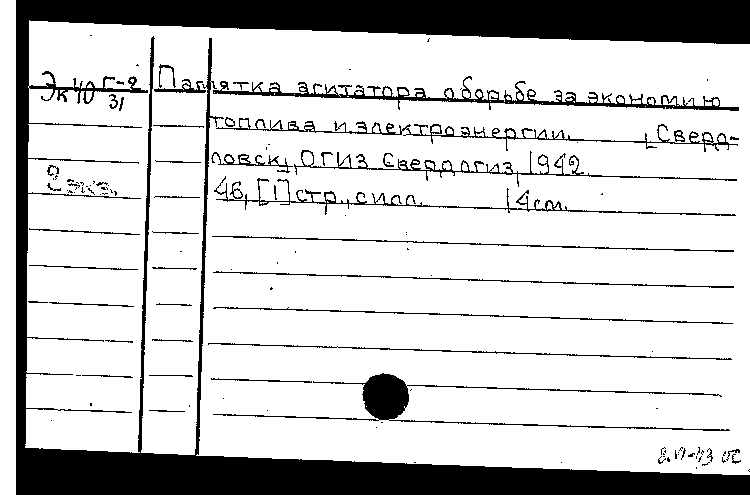 Эк40 Г-2/31 Памятка агитатора о борьбе за экономию
топлива и электроэнергии. [Сверд-
ловск], ОГИЗ Свердлогиз, 1942.
2 экз. 46, [1] стр., с илл. 14 см.